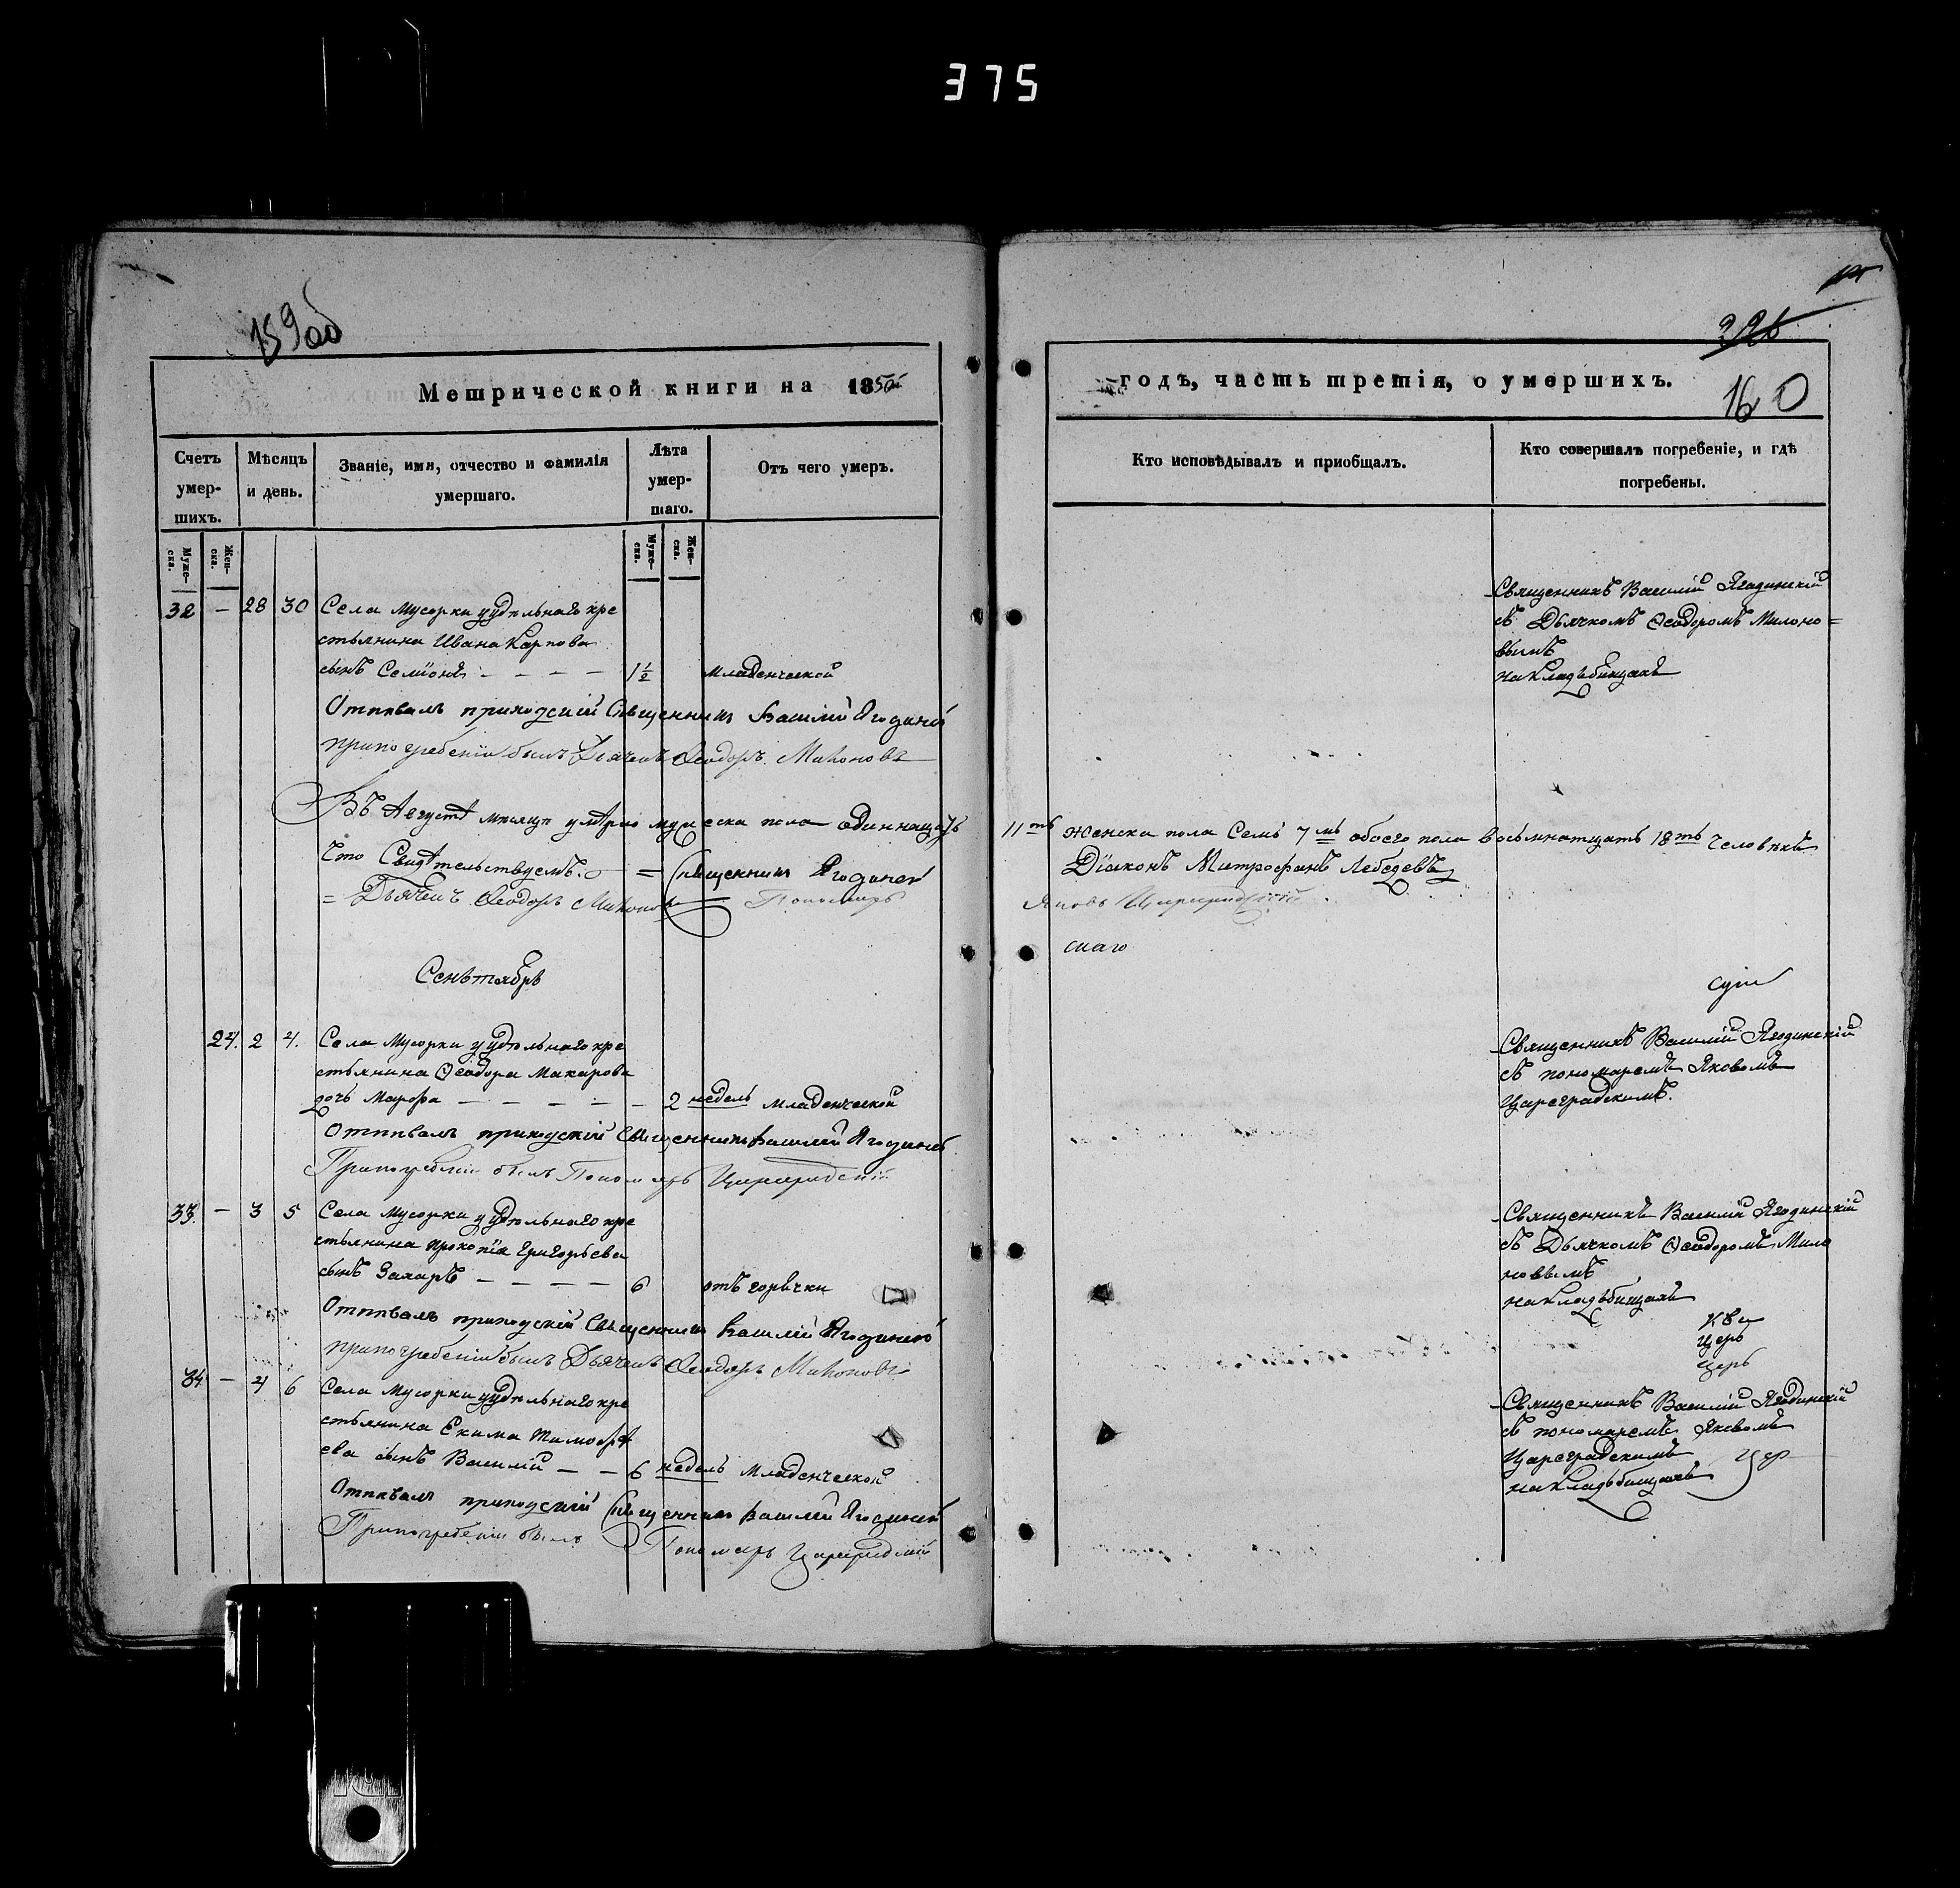 375
159об
326
160
Метрической книги на 1850й
годъ, часть третія, о умершихъ.
Счетъ умер-шихъ.
Мѣсяцъ и день.
Званіе, имя, отчество и фамилія умершаго.
Лѣта умер-шаго.
Отъ чего умеръ.
Кто исповѣдывалъ и приобщалъ.
Кто совершалъ погребеніе, и гдѣ погребены.
Муже-ска.
Жен-ска.
Муже-ска.
Жен-ска.
32 – 28 30 Села Мусорки удѣльнаго кре
стьянина Ивана Карпова
сынъ Семіонъ – – – – 1½ младенческой
Священникъ Василій Ягодинскій
съ Дьячкомъ Ѳеодоромъ Милоно=
вымъ
на кладьбищахъ
Отпѣвалъ приходскій Священникъ Василій Ягодинскій
при погребеніи былъ Дьячекъ Ѳеодоръ Милоновъ
Въ Августѣ мѣсяцѣ умѣрло мужеска пола одиннацать
11ть женска пола Семь 7мь обоего пола восьмнатцать 18ть Человѣкъ
Что Свидѣтельствуемъ. = Священникъ Ягодинскій
Діаконъ Митрофанъ Лебедевъ
= Дьячекъ Ѳеодоръ Милоновъ Пономарь
Яковъ Цареградскій
скаго
Сеньтябрь
24. 2 4. Села Мусорки удѣльнаго кре
стьянина Ѳеодора Макарова
дочь Марфа – – – – – 2 недель младенческой
Священникъ Василій Ягодинскій
съ пономаремъ Яковомъ
Цареградскимъ.
Отпѣвалъ приходскій Священникъ Василій Ягодинскій
При погребеніи былъ Пономарь Цареградскій
33. – 3 5 Села Мусорки удѣльнаго кре
стьянина Прокопія Григорьева
сынъ Захаръ – – – – 6 отъ горячки
Священникъ Василій Ягодинскій
съ Дьячкомъ Ѳеодоромъ Мило
новымъ
на кладьбищахъ
Царь
Царь
Отпѣвалъ приходскій Священникъ Василій Ягодинскій
при погребеніи былъ Дьячекъ Ѳеодоръ Милоновъ
34 – 4 6 Села Мусорки удѣльнаго кре
стьянина Екима Тимофѣ
ева сынъ Василій – – 6 недель младенческой
Священникъ Василій Ягодинскій
съ пономаремъ Яковомъ
Цареградскимъ
на кладьбищахъ
Отпѣвалъ приходскій Священникъ Василій Ягодинскій
При погребеніи былъ Пономарь Цареградскій